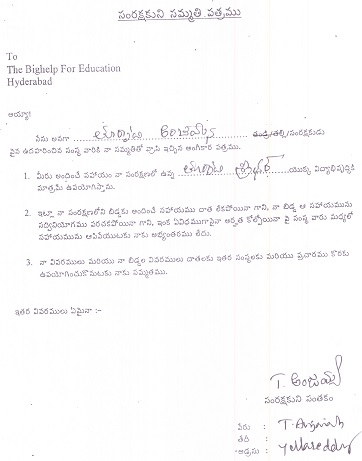 సంరక్షకుని సమ్మతి పత్రము
To
The Bighelp For Education
Hyderabad
అయ్యా!
నేను అనగా ............ తండ్రి/తల్లి/సంరక్షకుడు
పైన ఉదహరించిన సంస్థ వారికి నా సమ్మతితో వ్రాసి ఇచ్చిన అంగీకార పత్రము.
1. మీరు అందించే సహాయం నా సంరక్షణలో ఉన్న ............ యొక్క విద్యాభివృద్ధికి
మాత్రమే ఉపయోగిస్తాను.
2. ఇట్లా నా సంరక్షణలోని బిడ్డకు అందించే సహాయము దాత లేకపోయినా గాని, నా బిడ్డ ఆ సహాయమును
సద్వినియోగము పరచకపోయినా గాని, ఇంక ఏవిధముగానైనా అర్హత కోల్పోయినా పై సంస్థ వారు మధ్యలో
సహాయమును ఆపివేయుటకు నాకు అభ్యంతరము లేదు.
3. నా వివరములు మరియు నా బిడ్డల వివరములు దాతలకు ఇతర సంస్థలకు మరియు ప్రచారము కొరకు
ఉపయోగించుకొనుటకు నాకు సమ్మతము.
ఇతర వివరములు ఏమైనా :-
T. అంజయ్య
సంరక్షకుని సంతకం
పేరు : T. Anjaiah
తేదీ :
అడ్రసు : Yellareddy